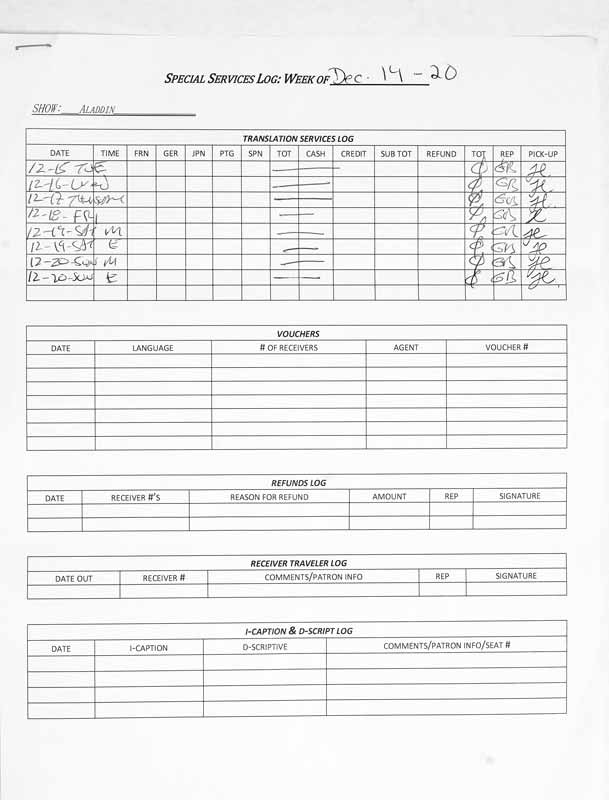 SPECIAL SERVICES LOG: WEEK OF Dec. 14 - 20
SHOW: ALADDIN
TRANSLATION SERVICES LOG
DATE TIME FRN GER JPN PTG SPN TOT CASH CREDIT SUB TOT REFUND TOT REP PICK-UP
12-15 TUE E ∅ GB JL
12-16-Wed ∅ GB JL
12-17 ∅ GB JL
12-18-FRI ∅ GB JL
12-19-SAT M ∅ GB JL
12-19-SAT E ∅ GB JL
12-20-Sun M ∅ GB JL
12-20-Sun E ∅ GB JL
VOUCHERS
DATE LANGUAGE # OF RECEIVERS AGENT VOUCHER #
REFUNDS LOG
DATE RECEIVER #'S REASON FOR REFUND AMOUNT REP SIGNATURE
RECEIVER TRAVELER LOG
DATE OUT RECEIVER # COMMENTS/PATRON INFO REP SIGNATURE
I-CAPTION & D-SCRIPT LOG
DATE I-CAPTION D-SCRIPTIVE COMMENTS/PATRON INFO/SEAT #